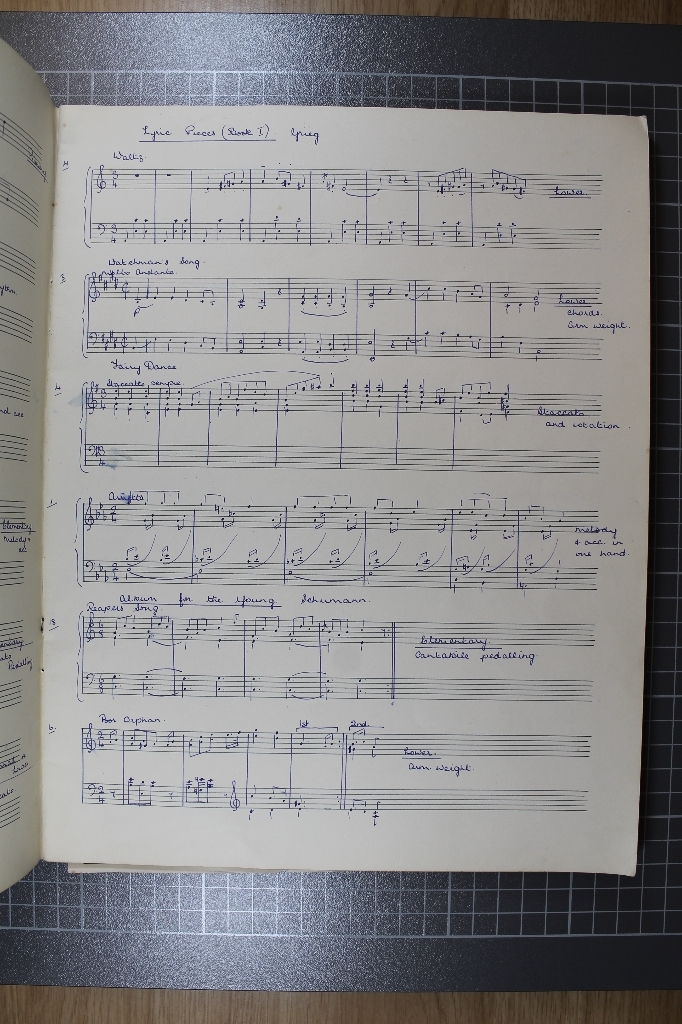 Lyric Pieces (Book I) Grieg
Waltz.
Lower.
Watchman's Song.
molto Andante.
p
Lower
chords.
Arm weight.
Fairy Dance
Staccato sempre.
Staccato
and rotation.
Arietta
melody
& acc. in
one hand.
Album for the Young Schumann.
Reapers Song.
18
Elementary.
Cantabile pedalling
Poor Orphan.
6.
1st
2nd.
Lower.
Arm weight.
nd see
Elementary
melody &
acc.
Pedalling